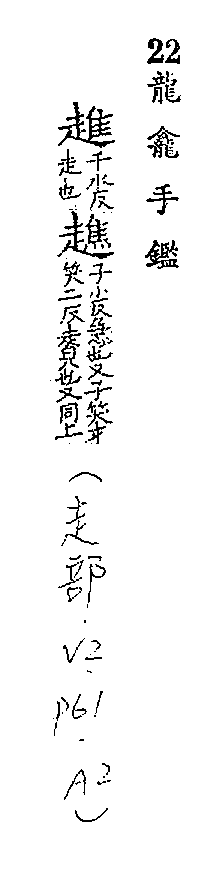 22 龍龕手鑑
趡千水反走也趭子小反急也又子笑才笑二反走皃也又同上(走部.V2.P61.A2)